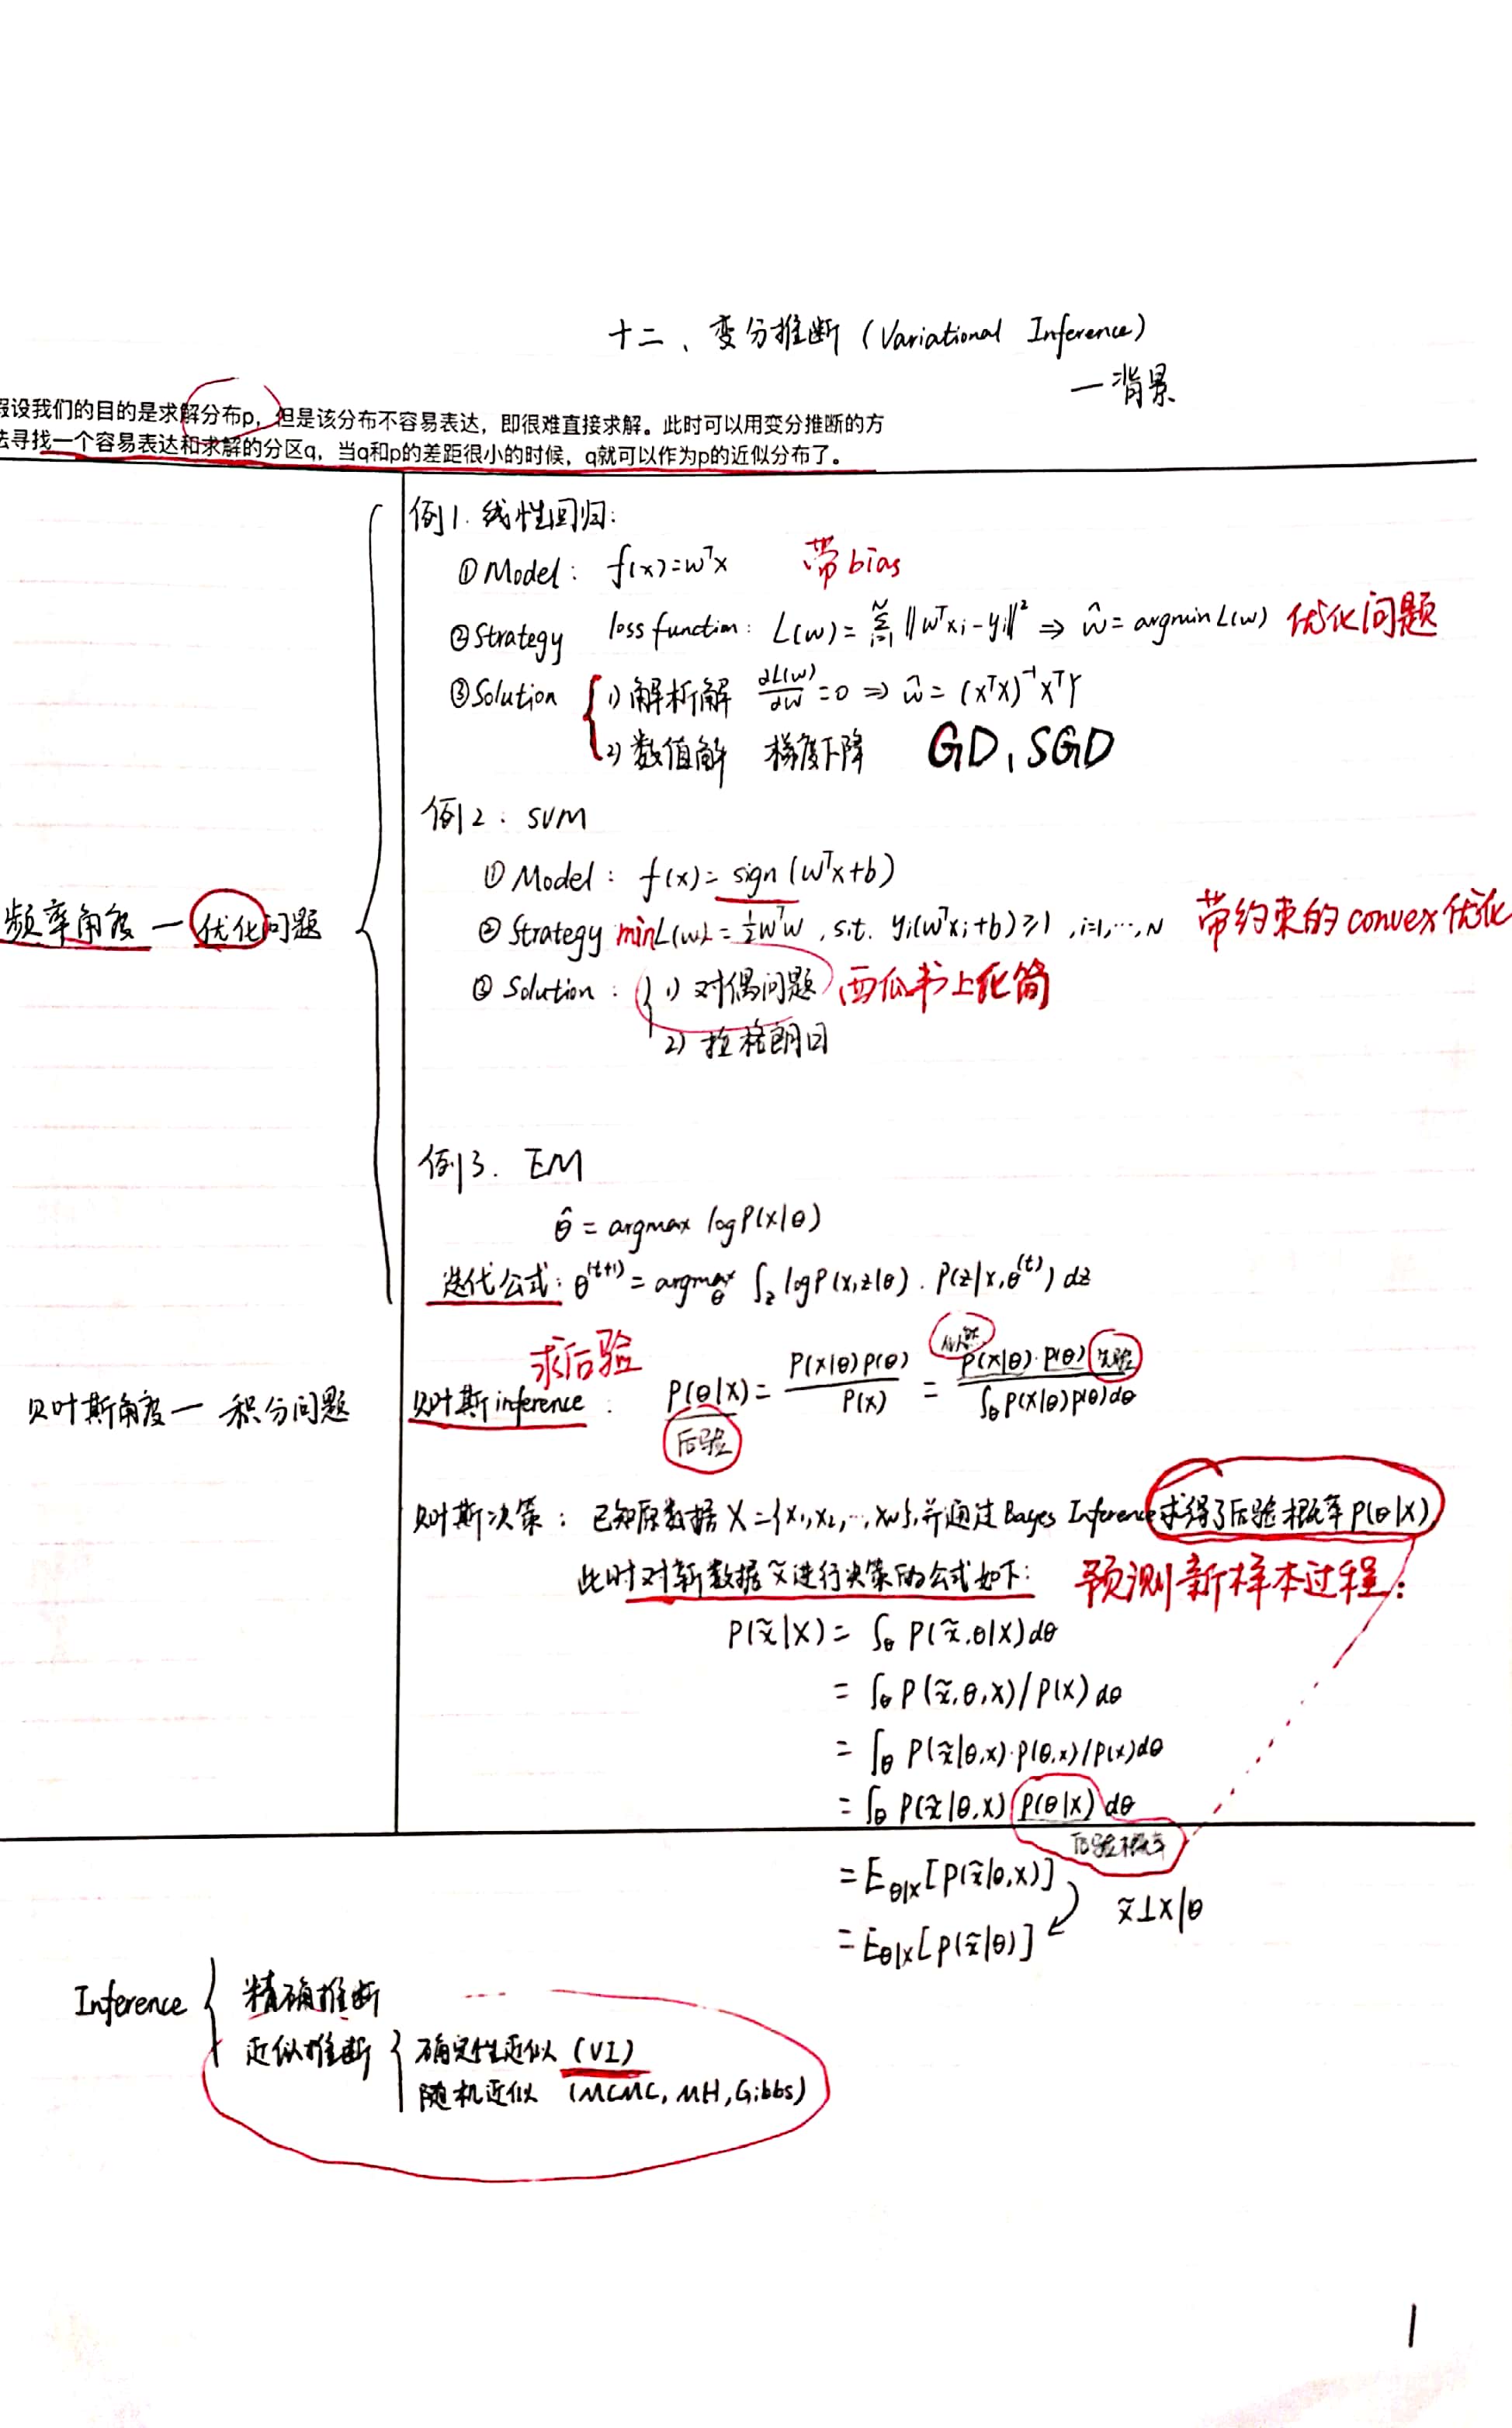 十二、变分推断 (Variational Inference)
— 背景
假设我们的目的是求解分布p，但是该分布不容易表达，即很难直接求解。此时可以用变分推断的方
法寻找一个容易表达和求解的分区q，当q和p的差距很小的时候，q就可以作为p的近似分布了。
频率角度 — 优化问题
例1. 线性回归:
① Model: f(x)=wᵀx 带bias
② Strategy loss function: L(w)= Σ_{i=1}^{N} ‖wᵀxi-yi‖² ⇒ ŵ= argmin L(w) 优化问题
③ Solution { 1) 解析解 ∂L(w)/∂w=0 ⇒ ŵ= (XᵀX)⁻¹XᵀY
2) 数值解 梯度下降 GD, SGD
例2: SVM
① Model: f(x)= sign (wᵀx+b)
② Strategy min L(w)= ½wᵀw, s.t. yi(wᵀxi+b)≥1, i=1,…,N 带约束的convex优化
③ Solution: { 1) 对偶问题 西瓜书上化简
2) 拉格朗日
例3. EM
θ̂ = argmax log P(x|θ)
迭代公式: θ^(t+1) = argmax_θ ∫_z log P(x,z|θ) · P(z|x,θ^(t)) dz
贝叶斯角度 — 积分问题
求后验
贝叶斯inference: P(θ|X)= P(X|θ)P(θ) / P(X) = P(X|θ)·P(θ) / ∫_θ P(X|θ)P(θ)dθ
似然
先验
后验
贝叶斯决策: 已知原数据X={x₁,x₂,…,x_N},并通过Bayes Inference求得了后验概率P(θ|X),
此时对新数据x̃进行决策的公式如下: 预测新样本过程:
P(x̃|X)= ∫_θ P(x̃,θ|X)dθ
= ∫_θ P(x̃,θ,X)/P(X) dθ
= ∫_θ P(x̃|θ,X)·P(θ,X)/P(X)dθ
= ∫_θ P(x̃|θ,X) P(θ|X) dθ
后验概率
= E_θ|X [P(x̃|θ,X)]
x̃⊥X|θ
= E_θ|X [P(x̃|θ)]
Inference { 精确推断
近似推断 { 确定性近似 (VI)
随机近似 (MCMC, MH, Gibbs)
1